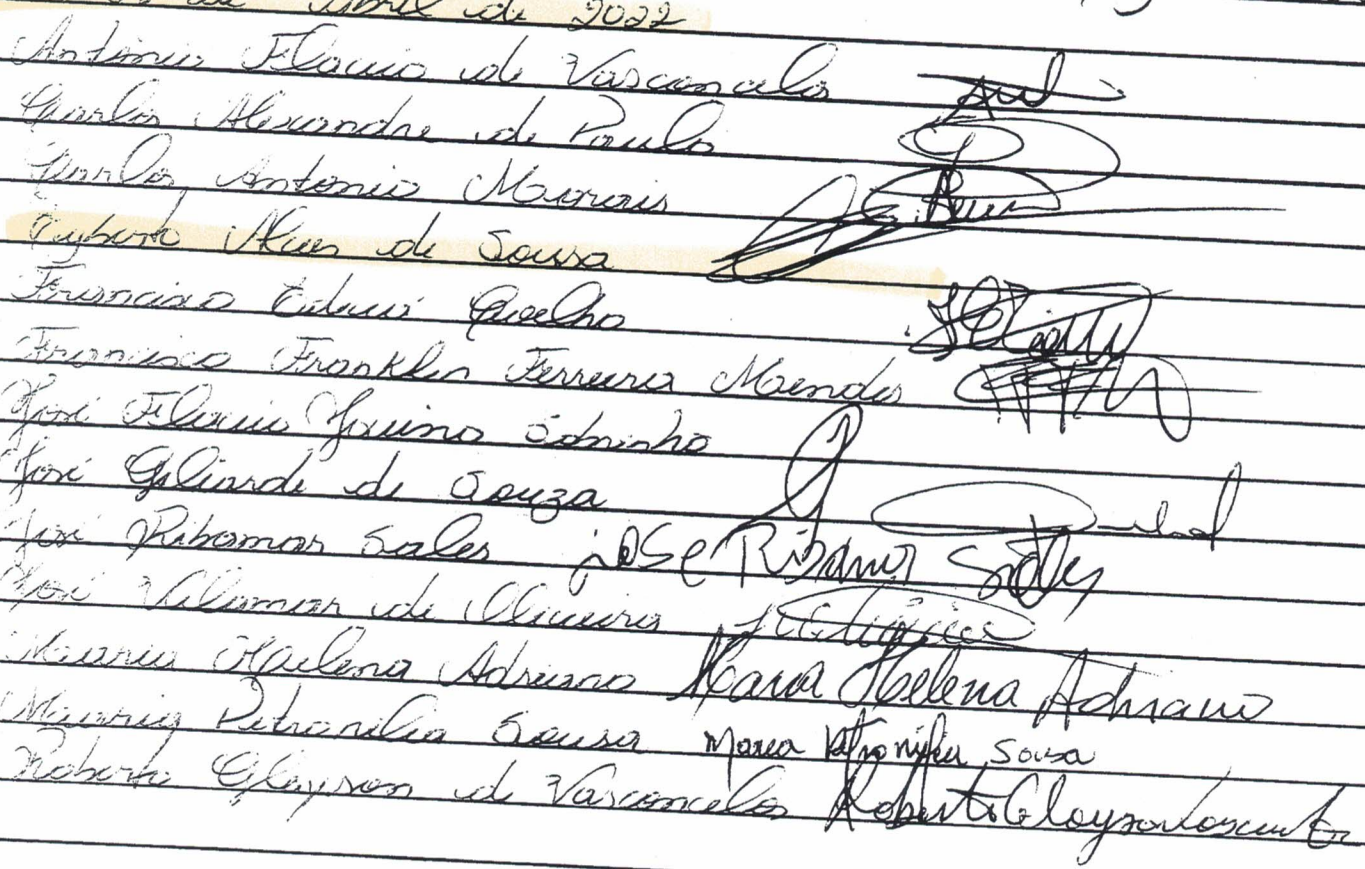 de Abril de 2022
Antônio Flavio de Vasconcelos
Carlos Alexandre de Paulo
Carlos Antonio Morais
Alves de Sousa
Francisco Coelho
Francisco Franklin Ferreira Mendes
José Flavio Jovino Sobrinho
José Gliarde de Souza
José Ribamar Sales José Ribamar Sales
José Valamar de Oliveira
Maria Hailena Adriano Maria Helena Adriano
Maria Petronilia Sousa Maria Petronilia Sousa
Roberto Glayson de Vasconcelos Roberto Glayson